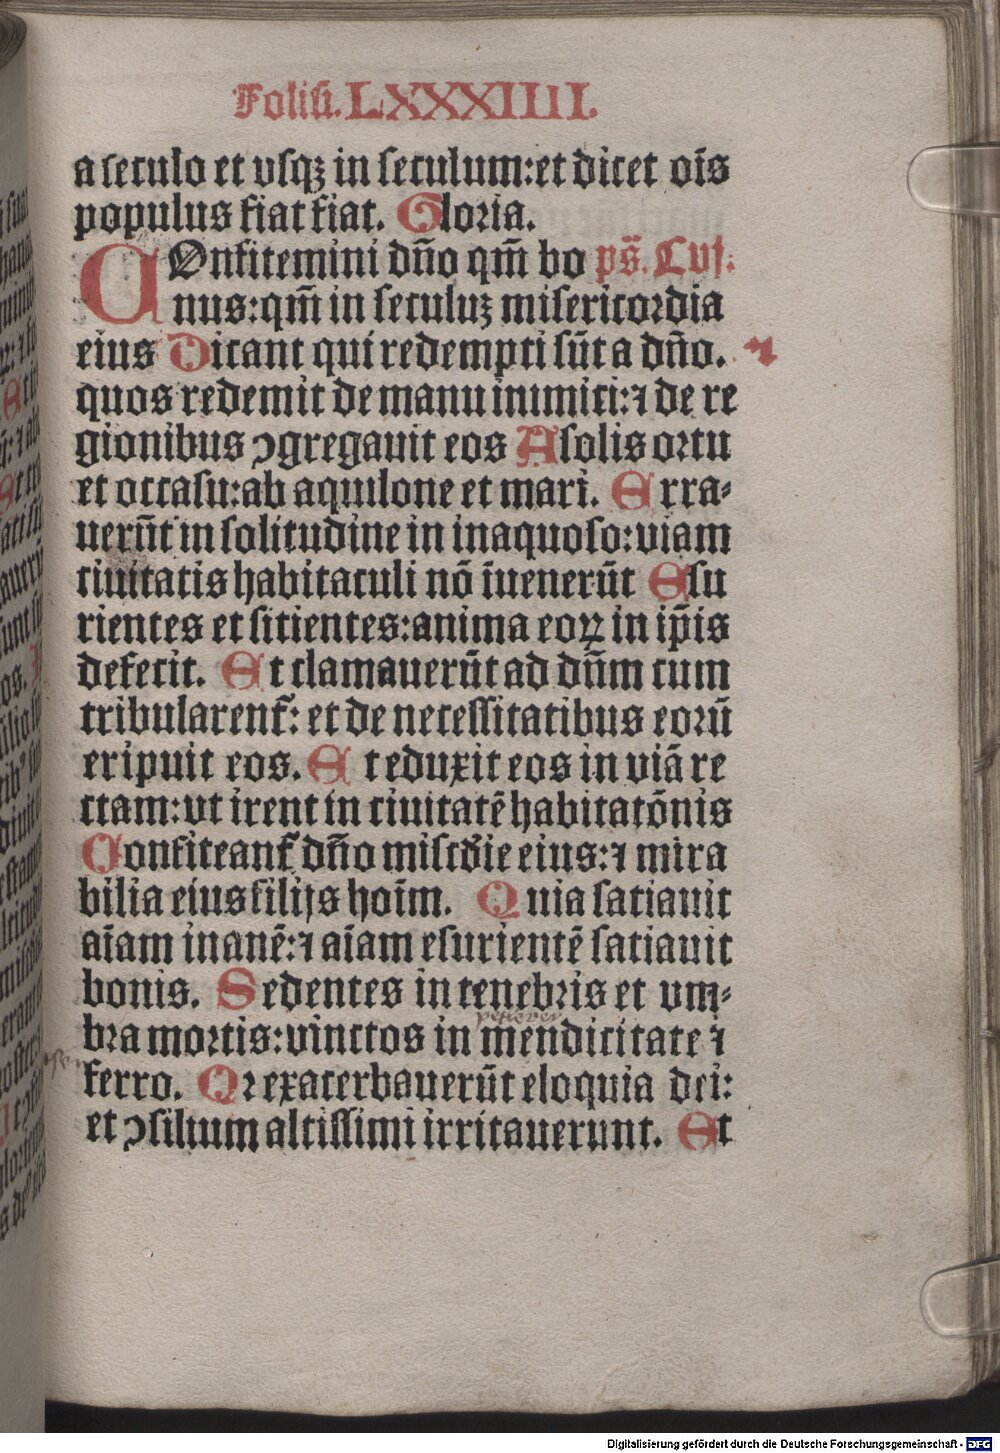 Foliũ. LXXXIIII.
a seculo et vsqꝫ in seculum: et dicet oı̄s
populus fiat fiat. Gloria.
COnfitemini dn̄o qm̄ bo ps̄. Cvj.
nus: qm̄ in seculuꝫ misericordia
eius Dicant qui redempti sūt a dn̄o. ⁊
quos redemit de manu inimici: ⁊ de re
gionibus ꝯgregauit eos A solis ortu
et occasu: ab aquilone et mari. Erra⸗
uerūt in solitudine in inaquoso: viam
ciuitatis habitaculi nō īuenerūt Esu
rientes et sitientes: anima eoꝝ in ip̄is
defecit. Et clamauerūt ad dn̄m cum
tribularenť: et de necessitatibus eorū
eripuit eos. Et eduxit eos in viā re
ctam: vt irent in ciuitatē habitatōnis
Confiteanť dn̄o misc̄die eius: ⁊ mira
bilia eius filijs hoı̄m. Quia satiauit
aı̄am inanē: ⁊ aı̄am esurientē satiauit
bonis. Sedentes in tenebris et vm⸗
bra mortis: vinctos in mendicitate ⁊
ferro. Qꝛ exacerbauerūt eloquia dei:
et ꝯsilium altissimi irritauerunt. Et
Digitalisierung gefördert durch die Deutsche Forschungsgemeinschaft - DFG